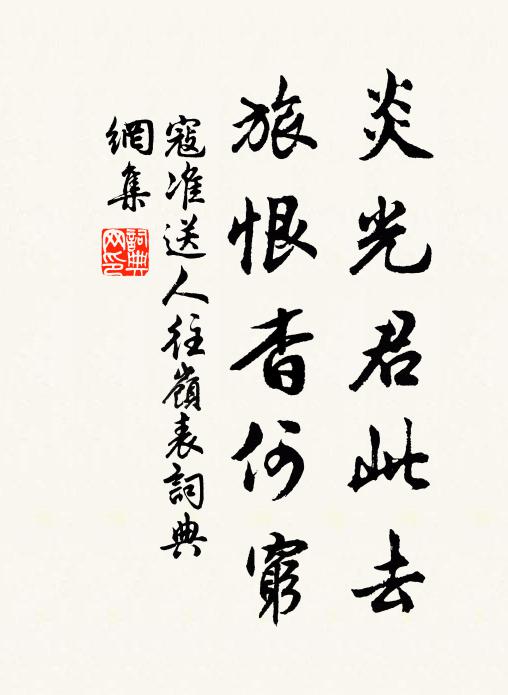 炎光君此去
旅恨杳何窮
寇准送人往嶺表詞典
網集
詞典
网印